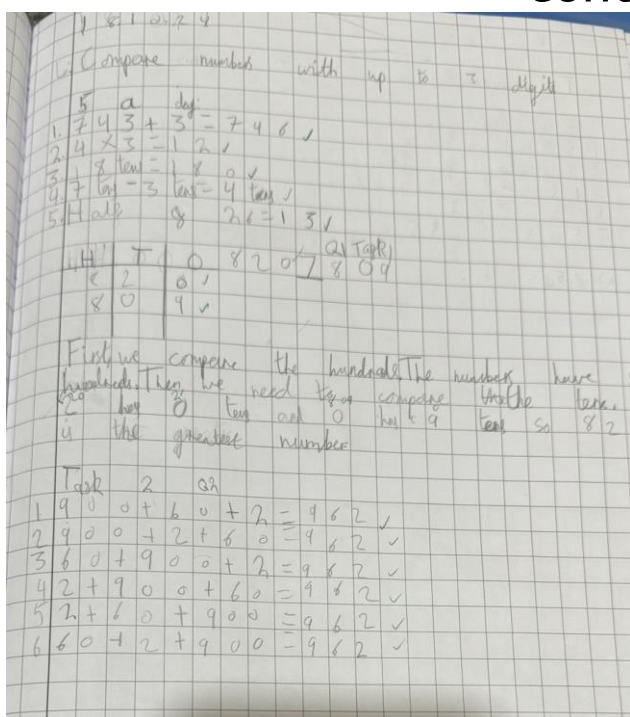 1 8 1 0 2 4
L: Compare numbers with up to 3 digits
5 a day
1. 7 4 3 + 3 = 7 4 6 ✓
2. 4 × 3 = 1 2 ✓
3. 1 8 tens = 1 8 0 ✓
4. 7 tens - 3 tens = 4 tens ✓
5. Half of 26 = 1 3 ✓
H T O 8 2 0 > 8 0 9 Q1 Task
8 2 0 ✓
8 0 9 ✓
First we compare the hundreds. The numbers have
hundreds. Then we need to compare the tens.
820 has 2 tens and 809 has tens so 82
is the greatest number
Task 2 Q2
1 9 0 0 + 6 0 + 2 = 9 6 2 ✓
2 9 0 0 + 2 + 6 0 = 9 6 2 ✓
3 6 0 + 9 0 0 + 2 = 9 6 2 ✓
4 2 + 9 0 0 + 6 0 = 9 6 2 ✓
5 2 + 6 0 + 9 0 0 = 9 6 2 ✓
6 6 0 + 2 + 9 0 0 = 9 6 2 ✓